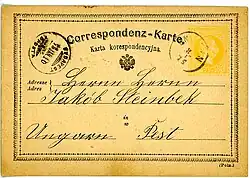 Correspondenz-Karte.
Karta korespondencyjna.
Adresse
Adres
Herrn Herrn
Jakób Steinbek
Ungarn Pest
(Poln.)